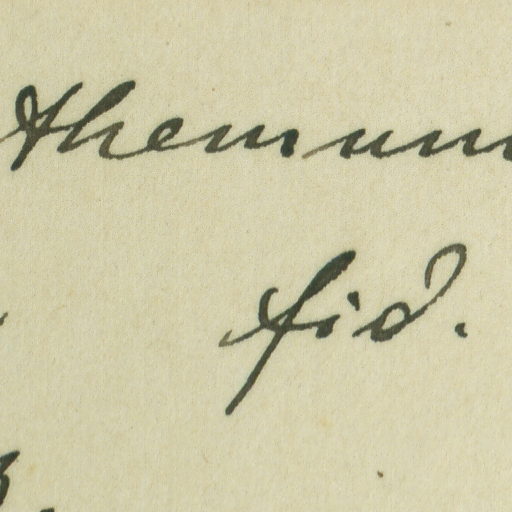 themum
fid.